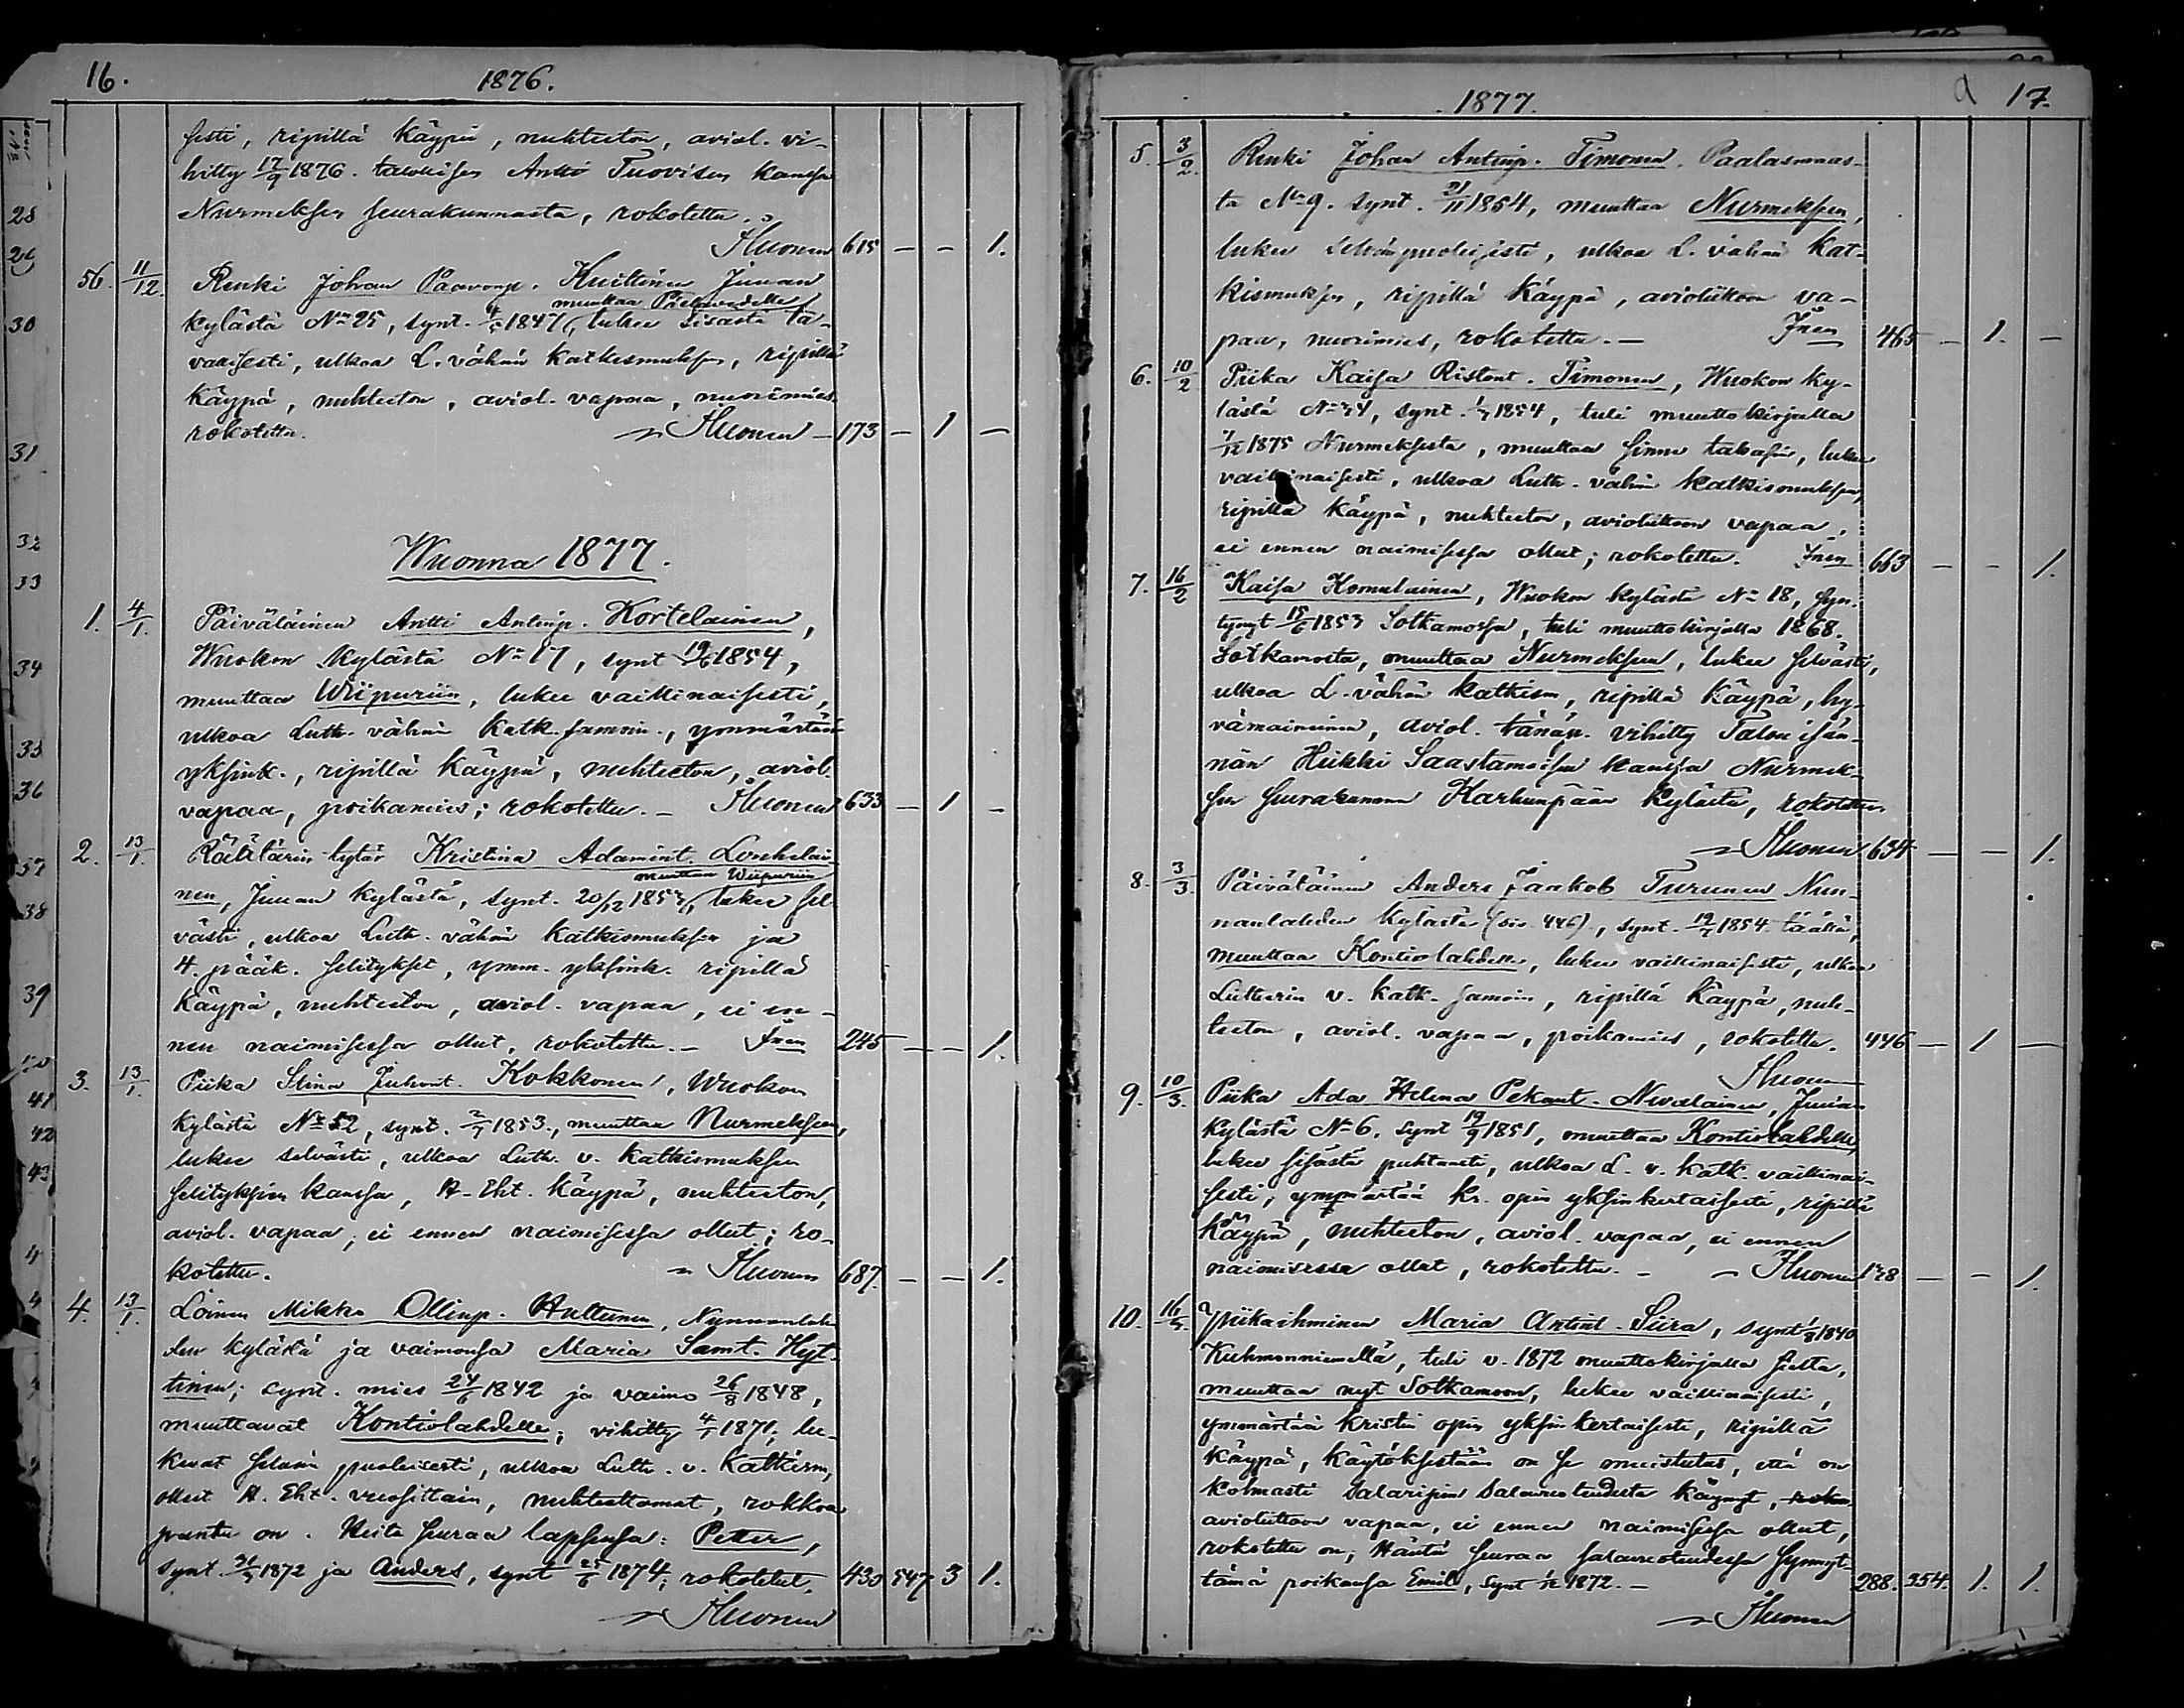 16. 1876.
sesti, ripillä käypä, nuhteeton, aviol. vi-
hitty 17/9 1876. Antti Tuovisen kanssa
Nurmeksen seurakunnasta, rokotettu.
615 — — 1.
56. 11/12. Renki Johan Paavonp. Kuittinen Juuan
muuttaa Pielavedelle
kylästä No 25, synt. 1847, lukee sisästä ta-
vallisesti, ulkoa L. vähän katkismuksen, ripillä
käypä, nuhteeton, aviol. vapaa, nuorimies
rokotettu. 173 — 1 —
Wuonna 1877.
1. 4/1. Päiväläinen Antti Antinp. Kortelainen,
Wuokon kylästä No 17, synt 1854,
muuttaa Wiipuriin, lukee vaillinaisesti,
ulkoa Luth. vähän katk. samoin., ymmärtää
yksink., ripillä käypä, nuhteeton, aviol.
vapaa, poikamies; rokotettu. — 633 — 1 —
2. 13/1. Räätärin tytär Kristina Adamint. Lonkelai-
muuttaa Wiipuriin
nen, Juuan kylästä, synt. 20/12 1853, lukee sel-
västi, ulkoa Luth. vähän katkismuksen ja
4. pääk. selitykset, ymm. yksink. ripillä
käypä, nuhteeton, aviol. vapaa, ei en-
nen naimisessa ollut, rokotettu. — 245 — — 1.
3. 13/1. Piika Stina Juhont. Kokkonen, Wuokon
kylästä No 52, synt. 1853., muuttaa Nurmeksen,
lukee selvästi, ulkoa Luth. v. katkismuksen
selityksien kanssa, H. Eht. käypä, nuhteeton,
aviol. vapaa, ei ennen naimisessa ollut; ro-
kotettu. 687. — — 1.
4. 13/1. Loinen Mikko Ollinp. Hultunen, Nunnanlah-
den kylästä ja vaimonsa Maria Samt. Hyt-
tinen; synt. mies 24/6 1842 ja vaimo 26/8 1848,
muuttavat Kontiolahdelle; vihitty 1871; lu-
kevat selvän puoleisesti, ulkoa Luth. v. Katkism,
olleet H. Eht. vuosittain, nuhteettomat, rokkoa
pantu on. Heitä seuraa lapsensa: Petter,
synt. 1872 ja Anders, synt 25/6 1874; rokotetut. 430 547 3 1.
1877. 17.
5. 3/2. Renki Johan Antinp. Timonen, Paalasmaas-
ta No 9. synt. 21/11 1854, muuttaa Nurmeksen,
lukee selvänpuoleisesti, ulkoa L. vähän kat-
kismuksen, ripillä käypä, avioliittoon va-
paa, nuorimies, rokotettu. — 465 — 1. —
6. 10/2 Piika Kaisa Ristont. Timonen, Wuokon ky-
lästä synt. 1854, tuli muuttokirjalla
1875 Nurmeksesta, muuttaa sinne takasin, lukee
vaillinaisesti, ulkoa Luth. vähän katkismuksen,
ripillä käypä, nuhteeton, avioliittoon vapaa,
ei ennen naimisessa ollut; rokotettu. 663 — — 1.
7. 16/2 Kaisa Komulainen, Wuokon kylästä No 18, syn-
tynyt 15/6 1853 Sotkamossa, tuli muuttokirjalla 1868.
Sotkamosta, muuttaa Nurmeksen, lukee selvästi,
ulkoa L. vähän katkism, ripillä käypä, hy-
vämaineinen, aviol. tänäp. vihitty Talon isän-
nän Heikki Saastamoisen kanssa Nurmek-
sen seurakunnan Karhunpään kylästä, rokotettu.
634 — — 1.
8. 3/3. Päiväläinen Anders Jaakob Turunen Nun-
nanlahden kylästä (siv. 446)., synt. 1854 täällä,
muuttaa Kontiolahdelle, lukee vaillinaisesti, ulkoa
Lutherin v. katk. samoin, ripillä käypä, nuh-
teeton, aviol. vapaa, poikamies, rokotettu. 446 — 1 —
9. 10/3. Piika Ada Helena Pekant. Nevalainen, Juuan
kylästä No 6. synt 19/9 1851, muuttaa Kontiolahdelle,
lukee sisästä puhtaasti, ulkoa L. v. katk. vaillinai-
sesti, ymmärtää kr. opin yksinkertaisesti, ripillä
käypä, nuhteeton, aviol. vapaa, ei ennen
naimisessa ollut, rokotettu. — — — 1.
10. Piikaihminen Maria Antint. Siira, synt 1840
Kuhmonniemellä, tuli v. 1872 muuttokirjalla sieltä,
muuttaa nyt Sotkamoon, lukee vaillinaisesti,
ymmärtää kristin opin yksinkertaisesti, ripillä
käypä, käytöksestään on se muistutus, että on
kolmasti salaripin salavuoteudesta käynyt,
avioliittoon vapaa, ei ennen naimisessa ollut,
rokotettu on; Häntä seuraa salavuoteudessa synnyt-
tämä poikansa Emil, synt 1872. — 288. 354. 1. 1.